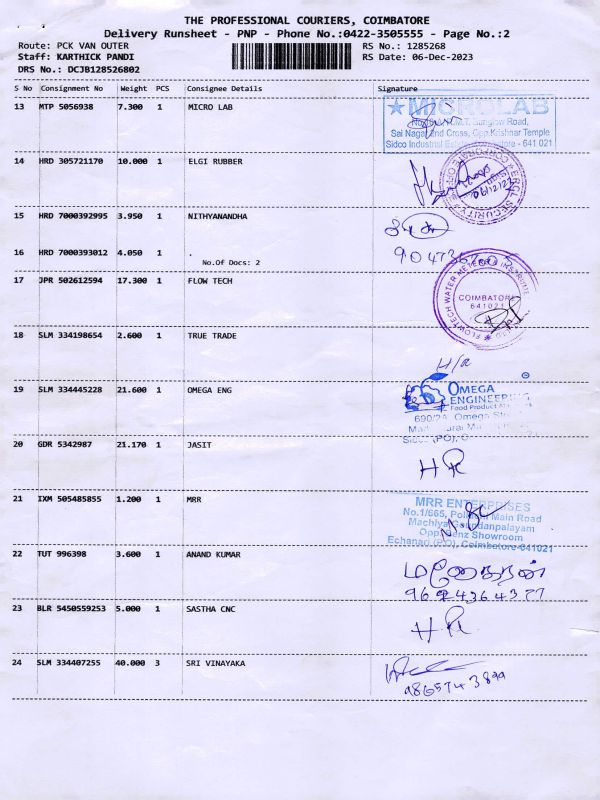 THE PROFESSIONAL COURIERS, COIMBATORE
Delivery Runsheet - PNP - Phone No.:0422-3505555 - Page No.:2
Route: PCK VAN OUTER
RS No.: 1285268
Staff: KARTHICK PANDI
RS Date: 06-Dec-2023
DRS No.: DCJB128526802
S No Consignment No Weight PCS Consignee Details Signature
13 MTP 5056938 7.300 1 MICRO LAB
MICROLAB
Road,
Sai Nagar 2nd Cross, Opp.Krishnar Temple
Sidco Industrial - 641 021
14 HRD 305721170 10.000 1 ELGI RUBBER
SECURITY
06/12/23
15 HRD 7000392995 3.950 1 NITHYANANDHA
16 HRD 7000393012 4.050 1 .
No.Of Docs: 2
17 JPR 502612594 17.300 1 FLOW TECH
FLOWTECH WATER METER
COIMBATORE
641021
18 SLM 334198654 2.600 1 TRUE TRADE
H/R
19 SLM 334445228 21.600 1 OMEGA ENG
OMEGA
ENGINEERING
Food Product
690/2A, Omega
20 GDR 5342987 21.170 1 JASIT
HR
21 IXM 505485855 1.200 1 MRR
MRR ENTERPRISES
No.1/665, Main Road
Machiya Goundanpalayam
Opp Benz Showroom
Echanari (P.O), Coimbatore-641021
22 TUT 996398 3.600 1 ANAND KUMAR
23 BLR 5450559253 5.000 1 SASTHA CNC
HR
24 SLM 334407255 40.000 3 SRI VINAYAKA
9865743899